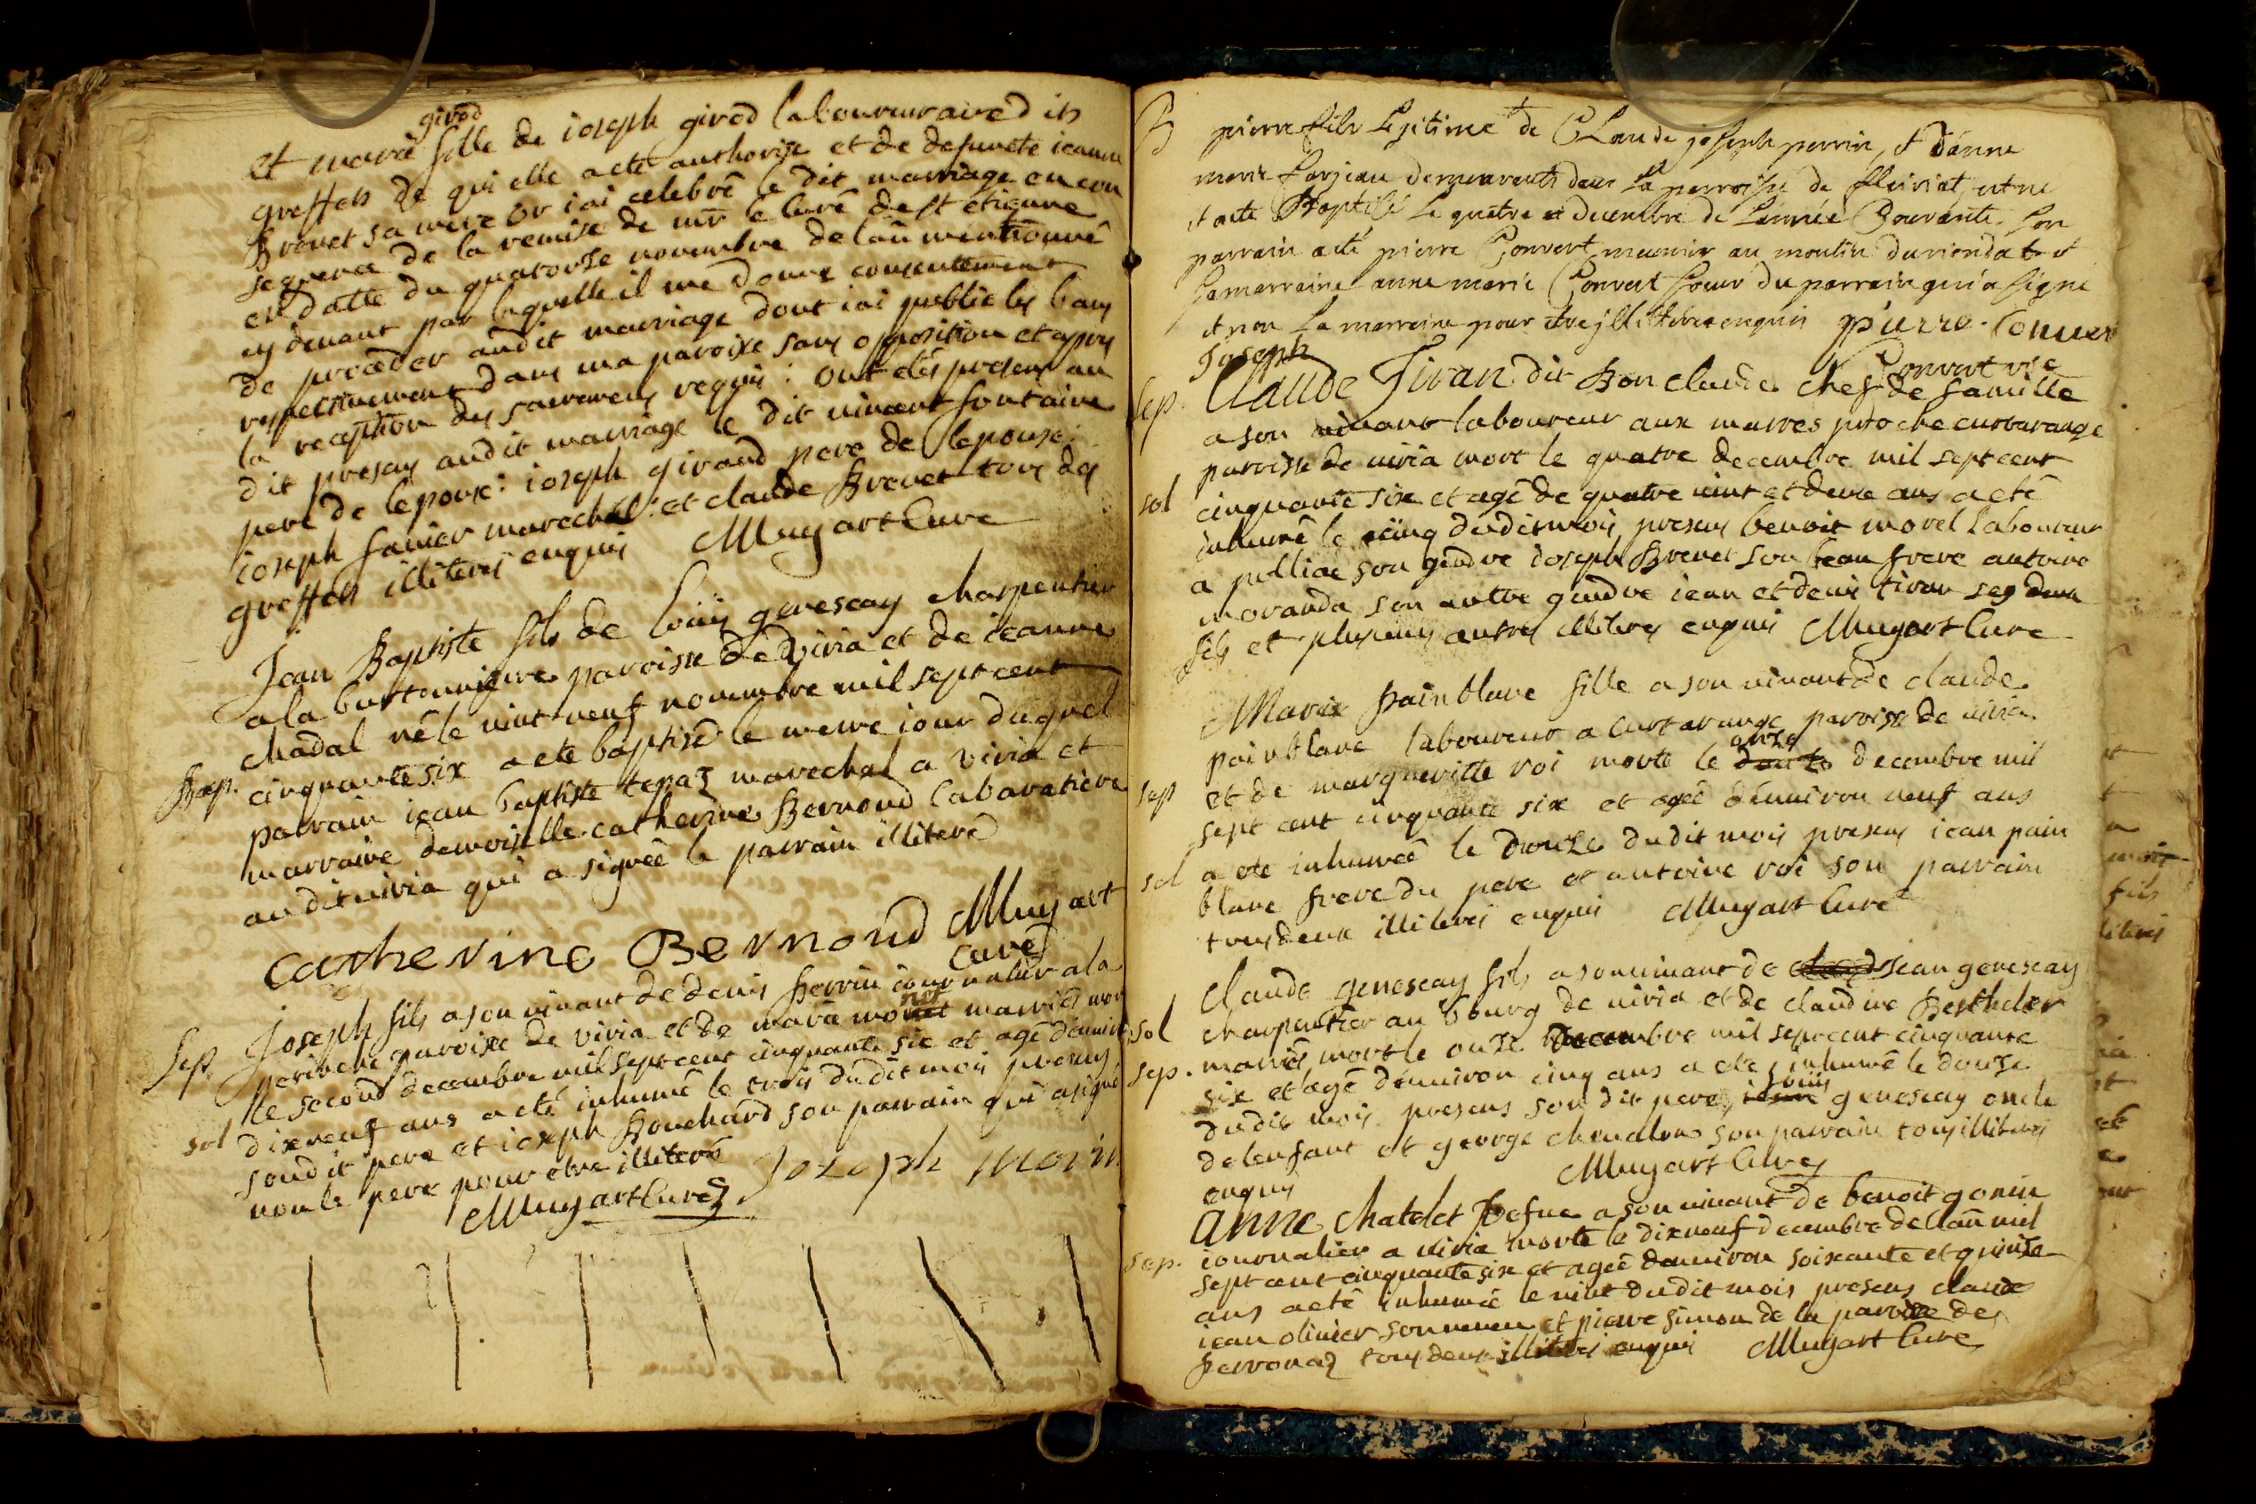 girod
et marie fille de ioseph girod laboureur aire d its
greffets de qui elle a eté authorisé et de defuncte ieanne
Brevet sa mere or iai celebré le dit mariage en con
sequence de la remise de mr le curé de st étienne
en datte du quatorze novembre de lan mentionné
cy devant par laquelle il me donne consentement
de proceder audit mariage dont iai publie les bans
respectivement dans ma paroisse sans opposition et apres
la reception des sacremens requis: ont etés presens au
dit presens audit mariage le dit vincent fontaine
pere de lepoux: ioseph giraud pere de lepouse:
ioseph favier marechal: et claude Brevet tous des
greffets illiterés enquis Mugart Curé
Jean Baptiste fils de loüis genescay charpentier
a la burtonniere paroisse de viria et de ieanne
chadal né le vint neuf novembre mil sept cent
Bap. cinquante six a eté baptisé le meme iour duquel
parrain iean baptiste tepaz marechal a viria et
marraine demoiselle catherine Bernond labaratiere
audit viria qui a signée le parrain illiteré
Catherine Bernond Mugart
Curé
Joseph fils a son vivant de denis perrin iournalier a la
Sep. peribche paroisse de viria et de marie mo not mariés mort
le second decembre mil sept cent cinquante six et agé denviron
sol dixneuf ans a eté inhumé le trois dudit mois presens
son dit pere et ioseph Bouchard son parrain qui a signé
non le pere pour etre illiteré Joseph Morin
Mugart Curé
B pierre fils Legitime de Claude joseph perrin, et d'anne
marie farjeau demeurants dans La parroisse de fleiriat, est né
et a eté Baptisé Le quatre decembre de Lannée Courante, son
parrain a eté pierre Convert meunier au moulin durienda et
sa marraine anne marie Convert soeur du parrain qui a signé
et non La marraine pour être jllitterée enquis pierre Conver
Convert vic
Joseph
Sep. Claude Tiran dit Bon claude chef de famille
a son vivant laboureur aux marres proche curtarange
paroisse de viria mort le quatre decembre mil sept cent
sol cinquante six et agé de quatre vint et deux ans a eté
inhumé le cinq dudit mois presens benoit morel laboureur
a polliac son gendre ioseph Brevet son beau frere antoine
moranda son autre gendre iean et denis tiran ses deux
fils et plusieurs autres illiteres enquis Mugart Curé
Marie painblanc fille a son vivant de claude
painblanc laboureur a curtarange paroisse de viria
onze
sep et de margueritte roi morte le decembre mil
sept cent cinquante six et agée denviron neuf ans
sol a ete inhumeé le douze dudit mois presens iean pain
blanc frere du pere et antoine roi son parrain
tous deux illiterés enquis Mugart Curé
Claude genescay fils a son vivant de iean genescay
sol charpentier au bourg de viria et de claudine Berthelet
sep. mariés mort le onze decembre mil sept cent cinquante
six et agé denviron cinq ans a eté inhumé le douze
loüis
dudit mois presens son dit pere, genescay oncle
de lenfant et george chevalon son parrain tous illiterés
enquis Mugart Curé
Anne Chatelet vefue a son vivant de benoit gonin
sep. iournalier a viria morte le dixneuf decembre de lan mil
sept cent cinquante six et agée denviron soixante et quinze
ans a eté inhumée le vint dudit mois presens claude
iean olivier son neveu et pierre simon de la paroisse de
perronaz tous deux illiterés enquis Mugart Curé